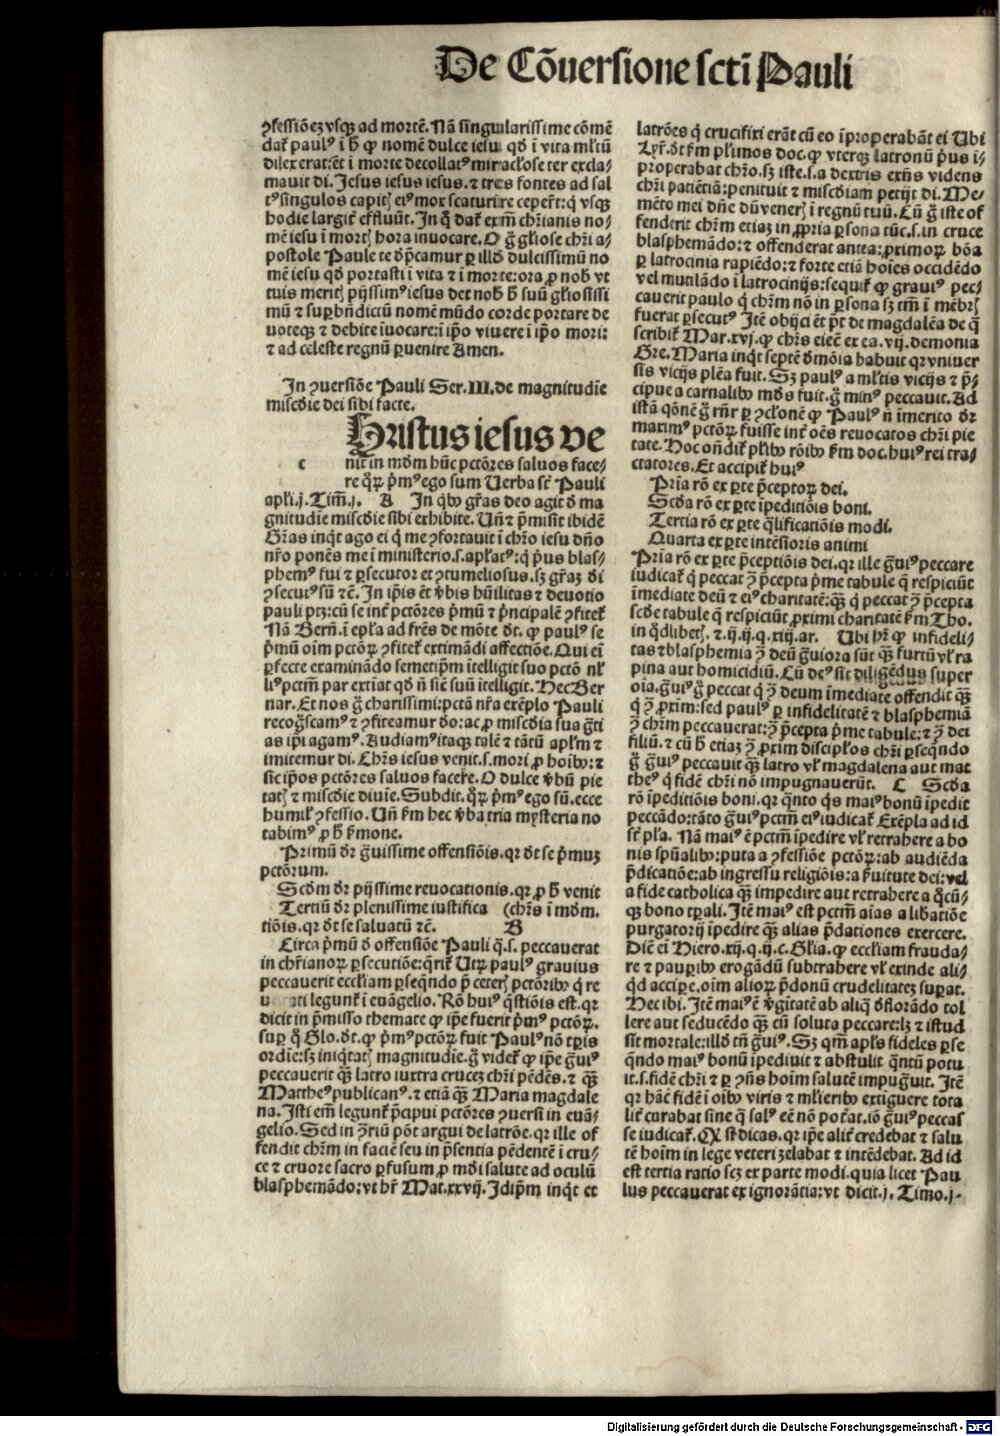 De Cōuersione sctī Pauli
ꝯfessiōeꝫ vsqꝫ ad mortē. Nā singularissime cōmē
dat᷑ paulꝰ ī h̄ ꝙ nomē dulce iesu qd̄ ī vita ml̓tū
dilexerat: ēt ī morte decollatꝰ miraclose ter excla-
mauit di. Jesus iesus iesus. ⁊ tres fontes ad sal
tꝰ singulos capitꝭ eiꝰ mox scaturire ceper̄t: q̇ vsqꝫ
hodie largit᷑ effluūt. In q̇ dat᷑ exm̄ chr̄ianis no-
mē iesu ī mortꝭ hora inuocare. O g̈ gl̓iose chr̄i a-
postole Paule te dp̄camur ꝑ illd̓ dulcissimū no
mē iesu qd̓ portasti ī vita ⁊ ī morte: ora ꝓ nob̓ vt
tuis meritꝭ pijssimꝰ iesus det nob̓ h̄ suū gl̓iosissi
mū ⁊ suꝑbn̄dictū nomē mūdo corde portare de
uoteqꝫ ⁊ debite īuocare: ī ip̄o viuere ī ip̄o mori:
⁊ ad celeste regnū ꝑuenire Amen.
In ꝯuersiōe Pauli Ser. III. de magnitudīe
misc̄die dei sibi facte.
Hristus iesus ve
c nit in md̄m hūc pctōres saluos face-
re qꝝ p̄mꝰ ego sum Verba sc̄t Pauli
apl̓i. j. Tim̄. j. A In qb̓ gr̄as deo agit d̓ ma
gnitudīe misc̄die sibi exhibite. Vn̄ ⁊ p̄misit ibidē
Gr̄as inqt ago ei q̇ me ꝯfortauit ī chr̄o iesu dn̄o
nr̄o ponēs me ī ministerio. s. apl̓atꝰ: q̇ pͥus blas-
phemꝰ fui ⁊ ꝑsecutor et ꝯtumeliosus. sꝫ gr̄aꝫ di
ꝯsecutꝰ sū ⁊c̄. In ip̄is ēt v̓bis hūilitas ⁊ deuotio
pauli ptꝫ: cū se int̓ pctōres p̄mū ⁊ p̄ncipalē ꝯfitet᷑
Nā Bern̄. ī ep̄la ad fr̄es de mōte dt̄. ꝙ paulꝰ se
p̄mū oīm pctōꝝ ꝯfitet᷑ extimādi affectiōe. Qui eī
ꝑfecte examinādo semetip̄m ītelligit suo pctō nl̓
liꝰ pctm̄ par extīat qd̓ n̄ sic̄ suū ītelligit. Hec Ber
nar. Et nos g̈ charissimi: pctā nr̄a exēplo Pauli
recog̈scamꝰ ⁊ ꝯfiteamur dō: ac ꝓ misc̄dia sua g̈ti
as ip̄i agamꝰ. Audiamꝰ itaqꝫ talē ⁊ tātū apl̓m ⁊
imitemur di. Chr̄s iesus venit. s. mori ꝓ hoībꝰ: ⁊
sic ip̄os pctōres saluos facer̄e. O dulce v̓bū pie
tatꝭ ⁊ misc̄die diuīe. Subdit. qꝝ p̄mꝰ ego sū. ecce
humil̓ ꝯfessio. Vn̄ ẜm hec v̓ba tria mysteria no
tabimꝰ ꝓ h̄ ẜmone.
Primū dr̄ g̈uissime offensiōis. qr dt̄ se p̄muꝫ
pctōrum.
Scd̄m dr̄ pijssime reuocationis. qr ꝓ h̄ venit
Tertiū dr̄ plenissime iustifica (chr̄s ī md̄m.
tiōis. qr dt̄ se saluatū ⁊c̄. B
Circa p̄mū d̓ offensiōe Pauli q̇. s. peccauerat
in chr̄ianoꝝ ꝑsecutiōe: q̄rit᷑ Vtꝝ paulꝰ grauius
peccauerit eccl̓iam ꝑseqn̄do p̄ ceterꝭ pctōribꝰ q̇ re
u ati legunt᷑ ī euāgelio. Rō huiꝰ q̄stiōis est. qr
dicit in p̄misso themate ꝙ ip̄e fuerit p̄mꝰ pctōꝝ.
suꝑ q̇ Glo. dt̄. ꝙ p̄mꝰ pctōꝝ fuit Paulꝰ nō tꝑis
ordīe: sꝫ iniq̇tatꝭ magnitudīe. g̈ videt᷑ ꝙ ip̄e g̈uiꝰ
peccauerit q̄ꝫ latro iuxta cruceꝫ chr̄i pēdēs. ⁊ q̄ꝫ
Mattheꝰ publicanꝰ. ⁊ etiā q̄ꝫ Maria magdale
na. Isti em̄ legunt᷑ p̄cipui pctōres ꝯuersi in euā-
gelio. Sed in ꝯriū pōt argui de latrōe. qr ille of
fendit chr̄m in faciē seu in p̄sentia pēdentē ī cru-
ce ⁊ cruore sacro ꝑfusum ꝓ mdi salute ad oculū
blasphemādo: vt hr̄ Mat. xxvij. Idip̄m inqt et
latrōes q̇ crucifixi erāt cū eo īproperabāt ei Vbi
Lyr̄. dt̄ ẜm pl̓imos doc. ꝙ vterqꝫ latronū pͥus ī-
properabat chr̄o. sꝫ iste. s. a dextris exn̄s videns
chr̄i patiētiā: penituit ⁊ misc̄diam petijt di. Me-
mēto mei dn̄e dū venerꝭ ī regnū tuū. Cū g̈ iste of
fenderit chr̄m etiaꝫ in ꝓpria ꝑsona tūc. s. in cruce
blasphemādo: ⁊ offenderat antea: ꝓximoꝝ bōa
ꝑ latrocinia rapiēdo: ⁊ forte etiā hoīes occidēdo
vel mutilādo ī latrocinijs: sequit᷑ ꝙ grauiꝰ pec-
cauerit paulo q̇ chr̄m nō in ꝑsona sꝫ tm̄ ī mēbrꝭ
fuerat ꝑsecutꝰ Itē obijci ēt pt̄ de magdalēa de q̄
scribit᷑ Mar. xvj. ꝙ chr̄s eiec̄ ex ea. vij. demonia
Gre. Maria inqt septē dmōia habuit qr vniuer
sis vicijs plēa fuit. Sꝫ paulꝰ a ml̓tis vicijs ⁊ p̄-
cipue a carnalibꝰ mdꝰ fuit. g̈ minꝰ peccauit. Ad
istā qōnē g̈ rn̄r ꝑ ꝯcl̓onē ꝙ Paulꝰ n̄ īmerito dr̄
maximꝰ pctōꝝ fuisse int̓ oēs reuocatos chr̄i pie
tate. Hoc on̄dit᷑ pl̓ibꝰ rōibꝰ ẜm doc. huiꝰ rei tra-
ctatores. Et accipit᷑ huiꝰ
Pria rō ex ꝑte p̄ceptoꝝ dei.
Scd̄a rō ex ꝑte īpeditiōis boni.
Tertia rō ex ꝑte q̄lificatiōis modi.
Quarta ex ꝑte intēsioris animi
Pria rō ex ꝑte p̄ceptiōis dei. qr ille g̈uiꝰ peccare
iudicat᷑ q̇ peccat ꝯ̄ p̄cepta p̄me tabule q̄ respiciūt
īmediate deū ⁊ eiꝰ charitatē: q̄ꝫ q̇ peccat ꝯ̄ p̄cepta
scd̄e tabule q̄ respiciūt ꝓximi charitatē ẜm Tho.
in q̇dlibetꝭ. ⁊. ij. ij. q. xiij. ar. Vbi hr̄ ꝙ infideli-
tas ⁊ blasphemia ꝯ̄ deū g̈uiora sūt q̄ꝫ furtū vl̓ ra
pina aut homicidiū. Cū deꝰ sit diligēdus super
oīa. g̈uiꝰ g̈ peccat q̇ ꝯ̄ deum īmediate offendit q̄ꝫ
q̇ ꝯ̄ ꝓxim: sed paulꝰ ꝑ infidelitatē ⁊ blasphemiā
ꝯ̄ chr̄m peccauerat: ꝯ̄ p̄cepta p̄me tabule: ⁊ ꝯ̄ dei
filiū. ⁊ cū h̄ etiaꝫ ꝯ̄ ꝓxim discipl̓os chr̄i ꝑseqn̄do
g̈ g̈uiꝰ peccauit q̄ꝫ latro vl̓ magdalena aut mat
theꝰ q̇ fidē chr̄i nō impugnauerūt. C Scd̄a
rō īpeditiōis boni. qr q̄nto q̇s maiꝰ bonū īpedit
peccādo: tāto g̈uiꝰ pctm̄ eiꝰ iudicat᷑ Exēpla ad id
sc̄t pl̓a. Nā maiꝰ ē pctm̄ īpedire vl̓ retrahere a bo
nis spūalibꝰ: puta a ꝯfessiōe pctōꝝ: ab audiēda
p̄dicatiōe: ab ingressu religiōis: a ẜuitute dei: vel
a fide catholica q̄ꝫ impedire aut retrahere a q̇cū-
qꝫ bono tꝑali. Itē maiꝰ est pctm̄ aīas a libatiōe
purgatorij īpedire q̄ꝫ alias p̄dationes exercere.
Dic̄ eī Hiero. xij. q. ij. c. Gl̓ia. ꝙ eccl̓iam frauda-
re ⁊ pauꝑibꝰ erogādū subtrahere vl̓ exinde ali-
q̇d accipe. oīm alioꝝ p̄donū crudelitateꝫ suꝑat.
Hec ibi. Itē maiꝰ ē v̓gitatē ab aliq̄ dflorādo tol
lere aut seducēdo q̄ꝫ cū soluta peccare: lꝫ ⁊ istud
sit mortale: illd̓ tn̄ g̈uiꝰ. Sꝫ qm̄ apl̓s fideles ꝑse
qn̄do maiꝰ bonū īpediuit ⁊ abstulit q̄ntū potu
it. s. fidē chr̄i ⁊ ꝑ ꝯn̄s hoīm salutē impug̈uit. Itē
qr hāc fidē ī oībꝰ viris ⁊ ml̓ieribꝰ extīguere tota
lit᷑ curabat sine q̄ salꝰ eē nō poṫat. iō g̈uiꝰ peccas
se iudicat᷑. Qꝫ si dicas. qr ip̄e alit᷑ credebat ⁊ salu
tē hoīm in lege veteri ꝫelabat ⁊ intēdebat. Ad id
est tertia ratio scꝫ ex parte modi. quia licet Pau
lus peccauerat ex ignorātia: vt dicit. j. Timo. j.
Digitalisierung gefördert durch die Deutsche Forschungsgemeinschaft - DFG